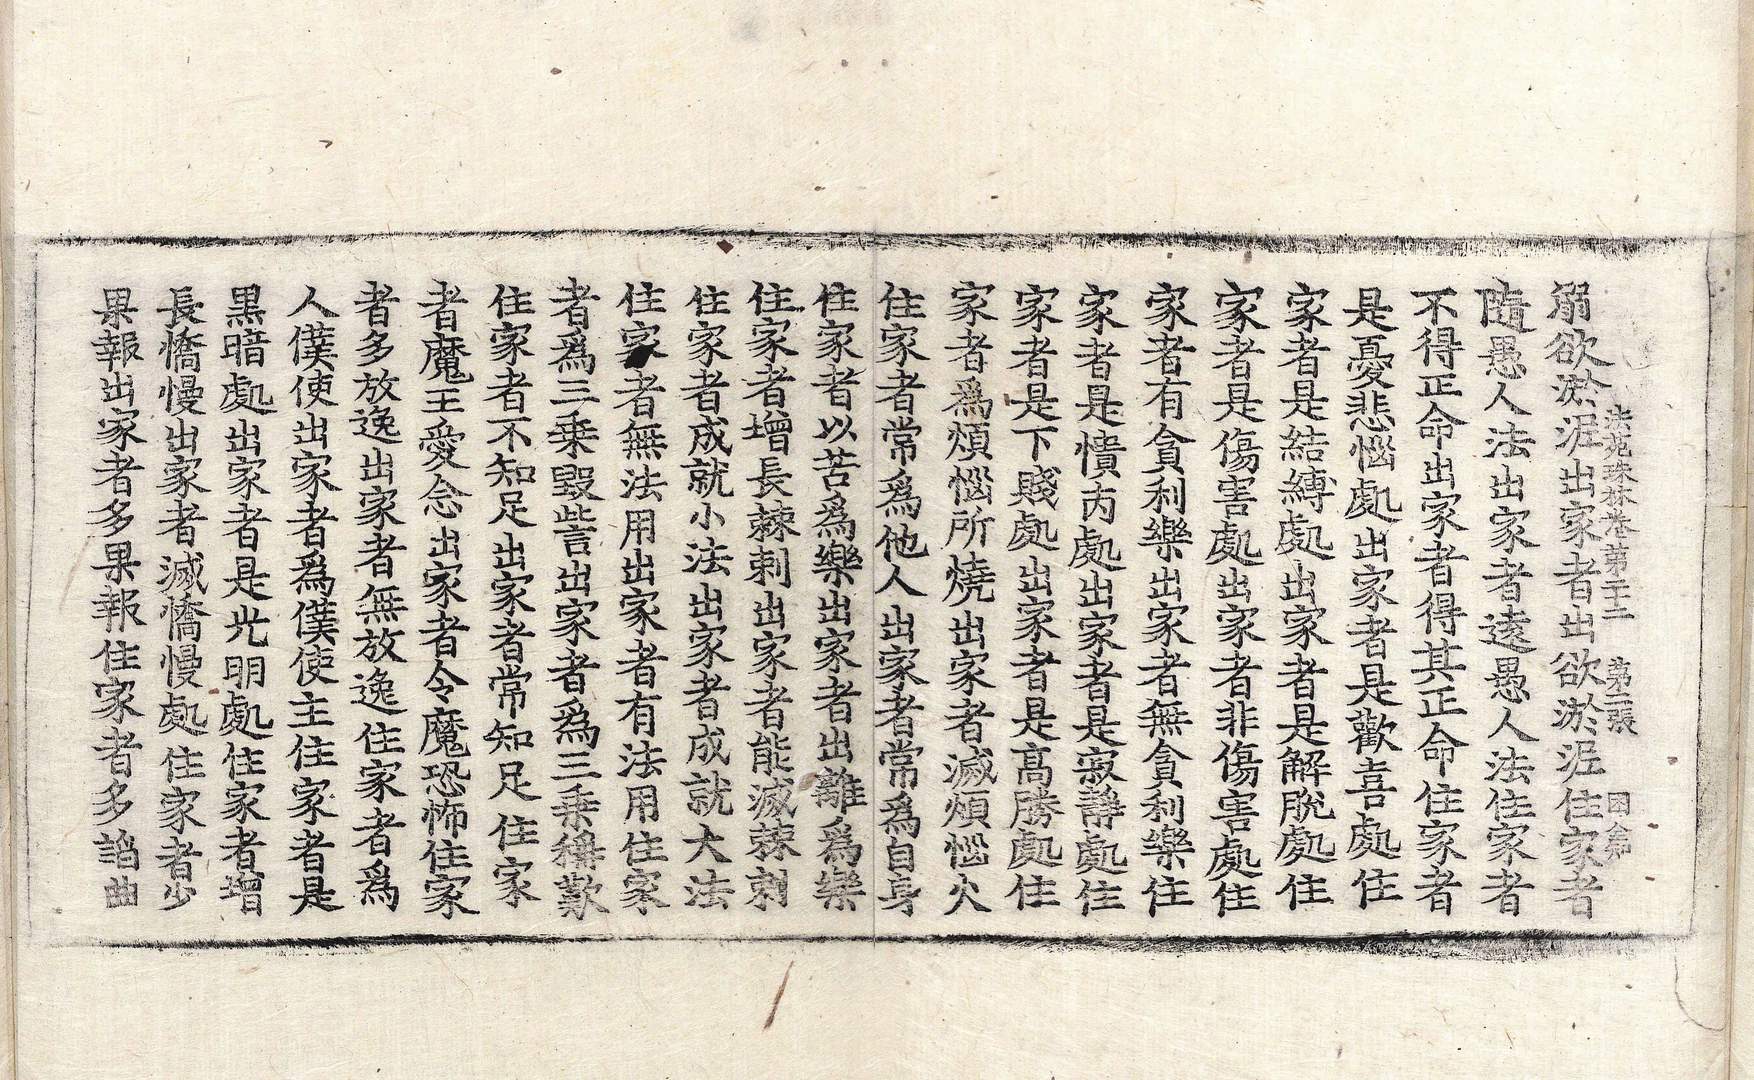 法苑珠林卷第二十二 第三張
溺欲淤泥出家者出欲淤泥住家者
隨愚人法出家者遠愚人法住家者
不得正命出家者得其正命住家者
是憂悲惱處出家者是歡喜處住
家者是結縛處出家者是解脫處住
家者是傷害處出家者非傷害處住
家者有貪利樂出家者無貪利樂住
家者是憒丙處出家者是寂靜處住
家者是下賤處出家者是高勝處住
家者爲煩惱所燒出家者滅煩惱火
住家者常爲他人出家者常爲自身
住家者以苦爲樂出家者出離爲樂
住家者增長棘刺出家者能滅棘刺
住家者成就小法出家者成就大法
住家者無法用出家者有法用住家
者爲三乘毀訾出家者爲三乘稱歎
住家者不知足出家者常知足住家
者魔王愛念出家者令魔恐怖住家
者多放逸出家者無放逸住家者爲
人僕使出家者爲僕使主住家者是
黑暗處出家者是光明處住家者增
長憍慢出家者滅憍慢處住家者少
果報出家者多果報住家者多諂曲